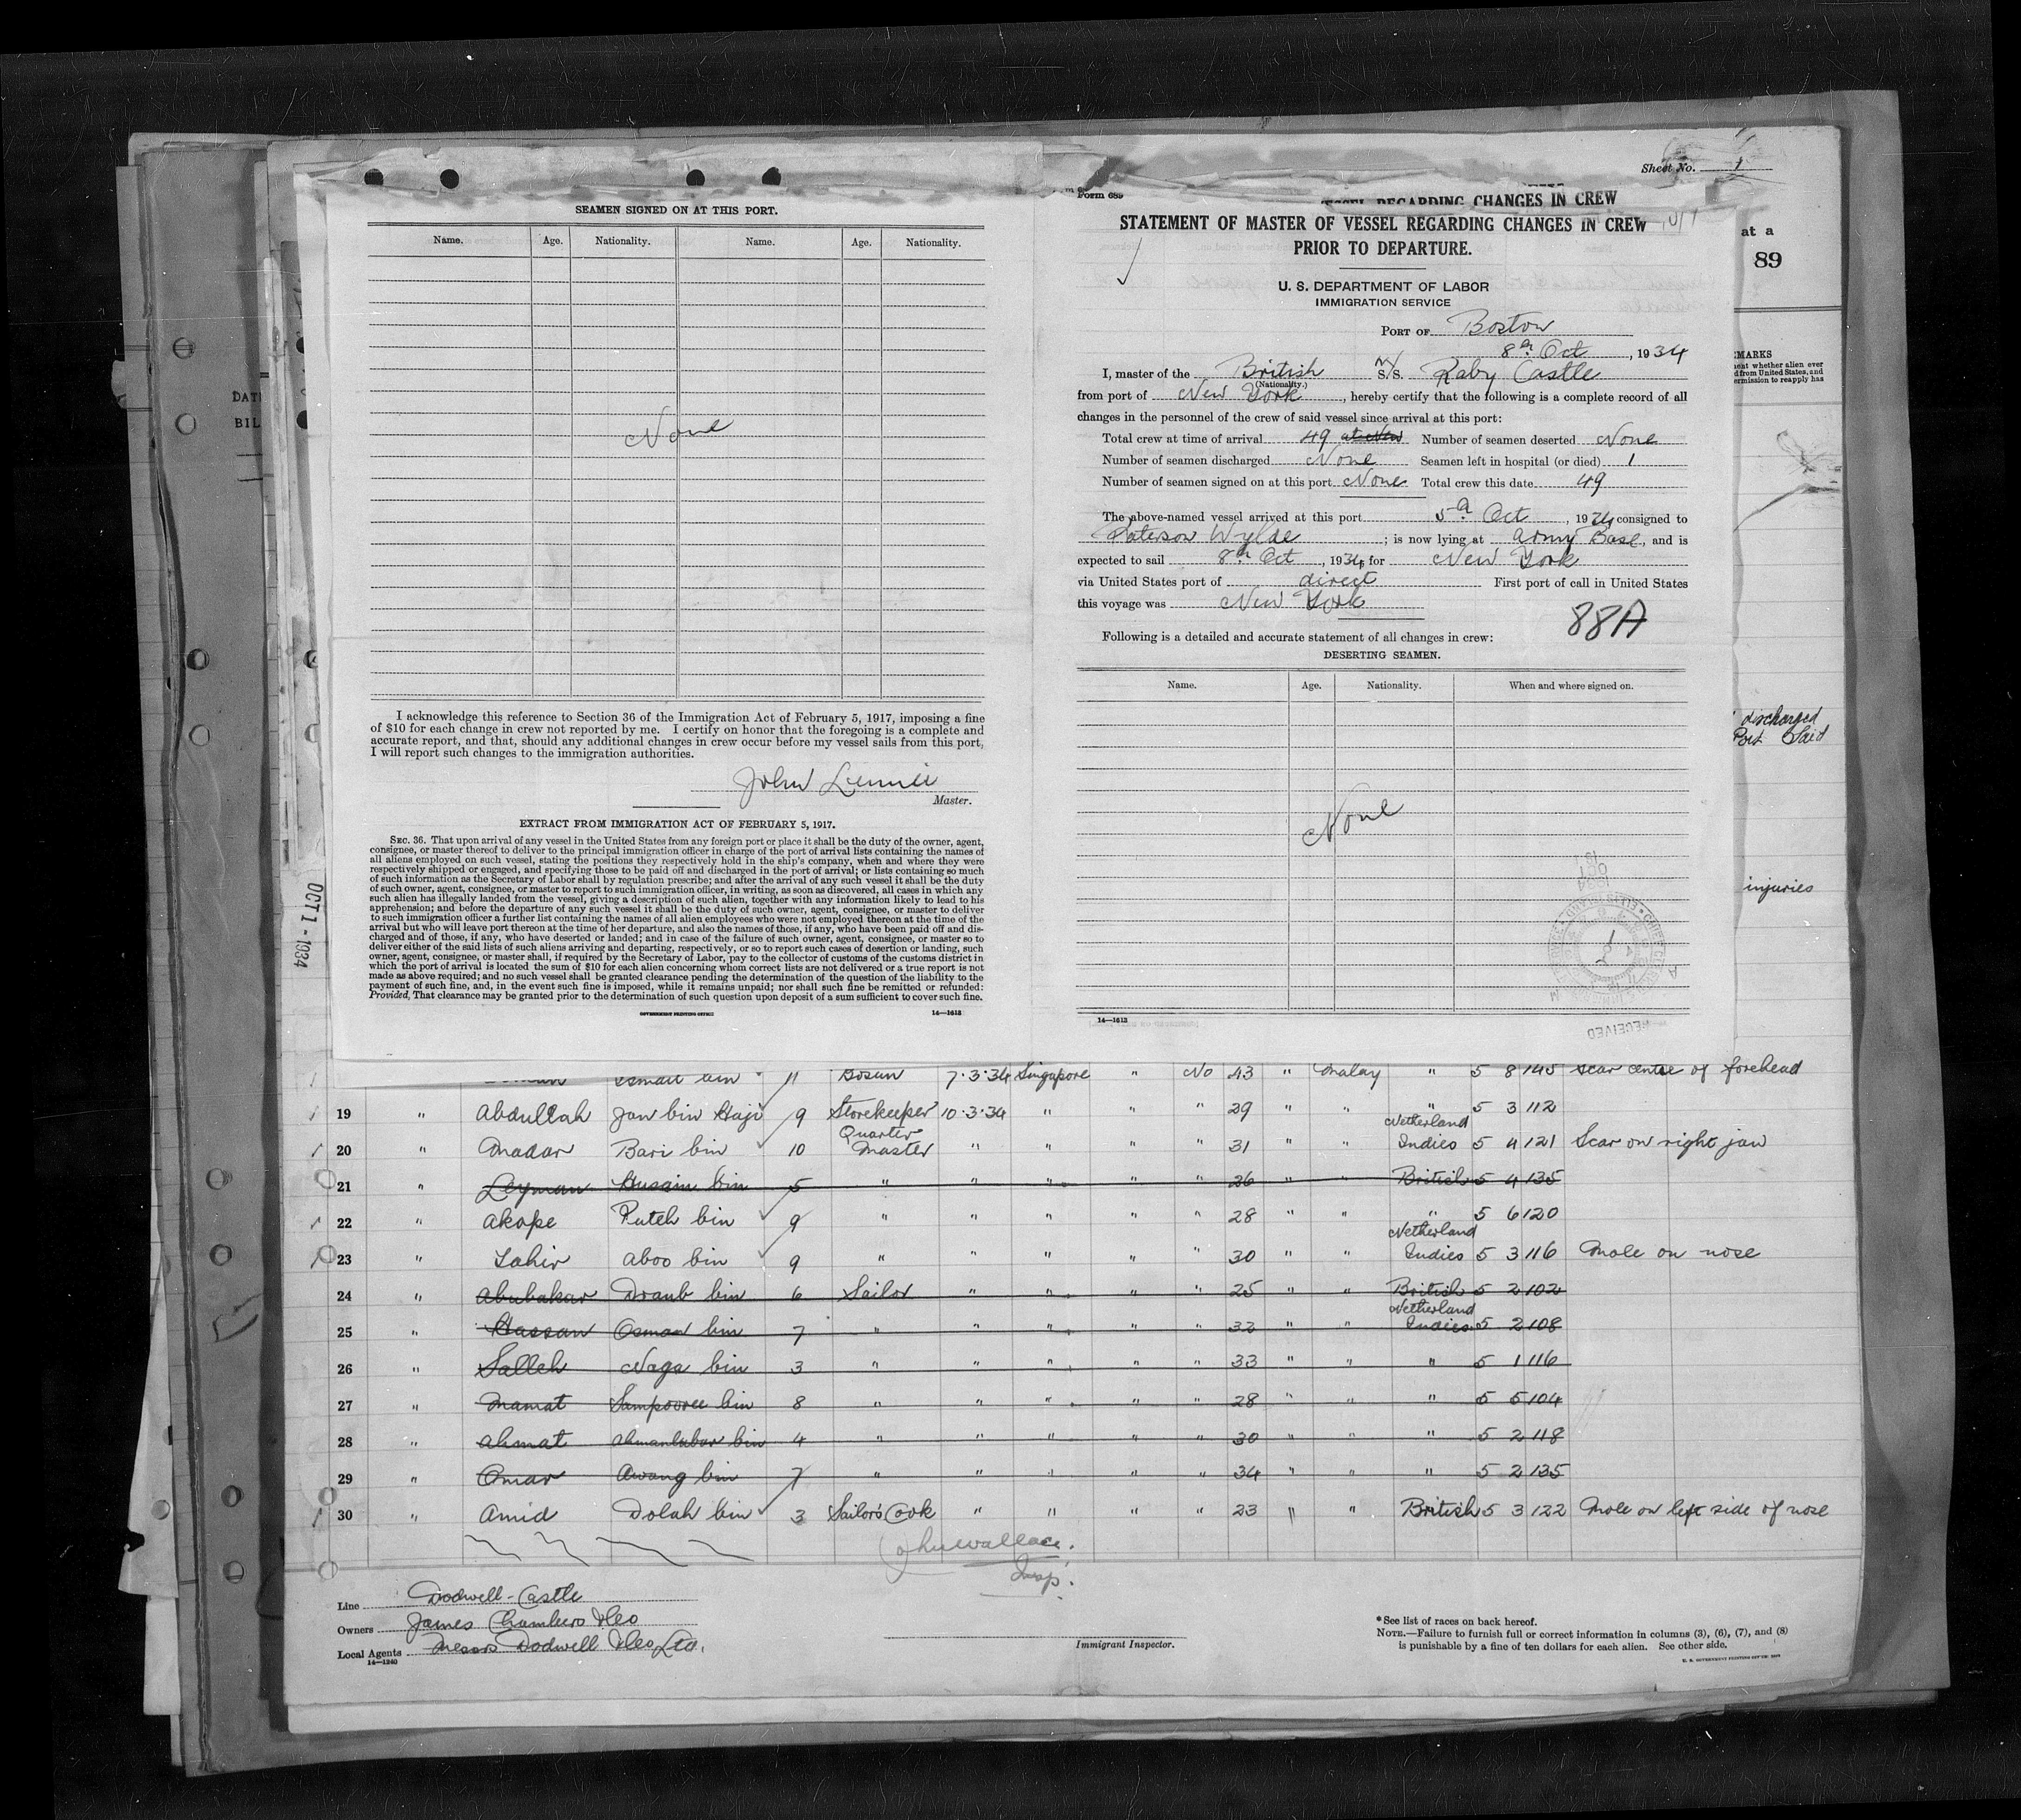 SEAMEN SIGNED ON AT THIS PORT.
Name. Age. Nationality. Name. Age. Nationality.
None
I acknowledge this reference to Section 36 of the Immigration Act of February 5, 1917, imposing a fine
of $10 for each change in crew not reported by me. I certify on honor that the foregoing is a complete and
accurate report, and that, should any additional changes in crew occur before my vessel sails from this port,
I will report such changes to the immigration authorities.
John
Master.
EXTRACT FROM IMMIGRATION ACT OF FEBRUARY 5, 1917.
SEC. 36. That upon arrival of any vessel in the United States from any foreign port or place it shall be the duty of the owner, agent,
consignee, or master thereof to deliver to the principal immigration officer in charge of the port of arrival lists containing the names of
all aliens employed on such vessel, stating the positions they respectively hold in the ship's company, when and where they were
respectively shipped or engaged, and specifying those to be paid off and discharged in the port of arrival; or lists containing so much
of such information as the Secretary of Labor shall by regulation prescribe; and after the arrival of any such vessel it shall be the duty
of such owner, agent, consignee, or master to report to such immigration officer, in writing, as soon as discovered, all cases in which any
such alien has illegally landed from the vessel, giving a description of such alien, together with any information likely to lead to his
apprehension; and before the departure of any such vessel it shall be the duty of such owner, agent, consignee, or master to deliver
to such immigration officer a further list containing the names of all alien employees who were not employed thereon at the time of the
arrival but who will leave port thereon at the time of her departure, and also the names of those, if any, who have been paid off and dis-
charged and of those, if any, who have deserted or landed; and in case of the failure of such owner, agent, consignee, or master so to
deliver either of the said lists of such aliens arriving and departing, respectively, or so to report such cases of desertion or landing, such
owner, agent, consignee, or master shall, if required by the Secretary of Labor, pay to the collector of customs of the customs district in
which the port of arrival is located the sum of $10 for each alien concerning whom correct lists are not delivered or a true report is not
made as above required; and no such vessel shall be granted clearance pending the determination of the question of the liability to the
payment of such fine, and, in the event such fine is imposed, while it remains unpaid; nor shall such fine be remitted or refunded:
Provided, That clearance may be granted prior to the determination of such question upon deposit of a sum sufficient to cover such fine.
GOVERNMENT PRINTING OFFICE 14—1613
Sheet No. 1
Form 689
VESSEL REGARDING CHANGES IN CREW
STATEMENT OF MASTER OF VESSEL REGARDING CHANGES IN CREW
PRIOR TO DEPARTURE.
U. S. DEPARTMENT OF LABOR
IMMIGRATION SERVICE
PORT OF Boston
8th Oct, 1934
I, master of the British M/S S/S. Raby Castle
(Nationality.)
from port of New York, hereby certify that the following is a complete record of all
changes in the personnel of the crew of said vessel since arrival at this port:
Total crew at time of arrival 49 Number of seamen deserted None
Number of seamen discharged None Seamen left in hospital (or died) 1
Number of seamen signed on at this port None Total crew this date 49
The above-named vessel arrived at this port 5th Oct, 1934, consigned to
Paterson Wylde; is now lying at Army Base, and is
expected to sail 8th Oct, 1934, for New York
via United States port of direct First port of call in United States
this voyage was New York
88A
Following is a detailed and accurate statement of all changes in crew:
DESERTING SEAMEN.
Name. Age. Nationality. When and where signed on.
None
RECEIVED
14—1613
at a
89
discharged
Port Said
injuries
DAT
BIL
OCT 1 - 1934
Ismail bin 11 Bosun 7.3.34 Singapore " No 43 " Malay " 5 8 145 Scar centre of forehead
19 " Abdullah Jan bin Haji 9 Storekeeper 10.3.34 " " " 29 " " " 5 3 112
20 " Madar Bari bin 10 Quarter Master " " " " 31 " " Netherland Indies 5 4 121 Scar on right jaw
21 " Leyman Husain bin 5 " " " " " 26 " " British 5 4 135
22 " Akope Puteh bin 9 " " " " " 28 " " " 5 6 120
23 " Tahir Aboo bin 9 " " " " " 30 " " Netherland Indies 5 3 116 Mole on nose
24 " Abubakar Draub bin 6 Sailor " " " " 25 " " British 5 2 102
25 " Hassan Osman bin 7 " " " " " 33 " " Netherland Indies 5 2 108
26 " Salleh Naga bin 3 " " " " " 33 " " " 5 1 116
27 " Mamat Sampooree bin 8 " " " " " 28 " " " 5 5 104
28 " Ahmat bin 4 " " " " " 30 " " " 5 2 118
29 " Omar Awang bin 7 " " " " " 34 " " " 5 2 135
30 " Amid Dolah bin 3 Sailor's Cook " " " " 23 " " British 5 3 122 Mole on left side of nose
John Wallace.
Insp.
Line Dodwell-Castle
Owners James Chambers & Co
Local Agents Messrs Dodwell & Co Ltd.
14—1240
Immigrant Inspector.
*See list of races on back hereof.
NOTE.—Failure to furnish full or correct information in columns (3), (6), (7), and (8)
is punishable by a fine of ten dollars for each alien. See other side.